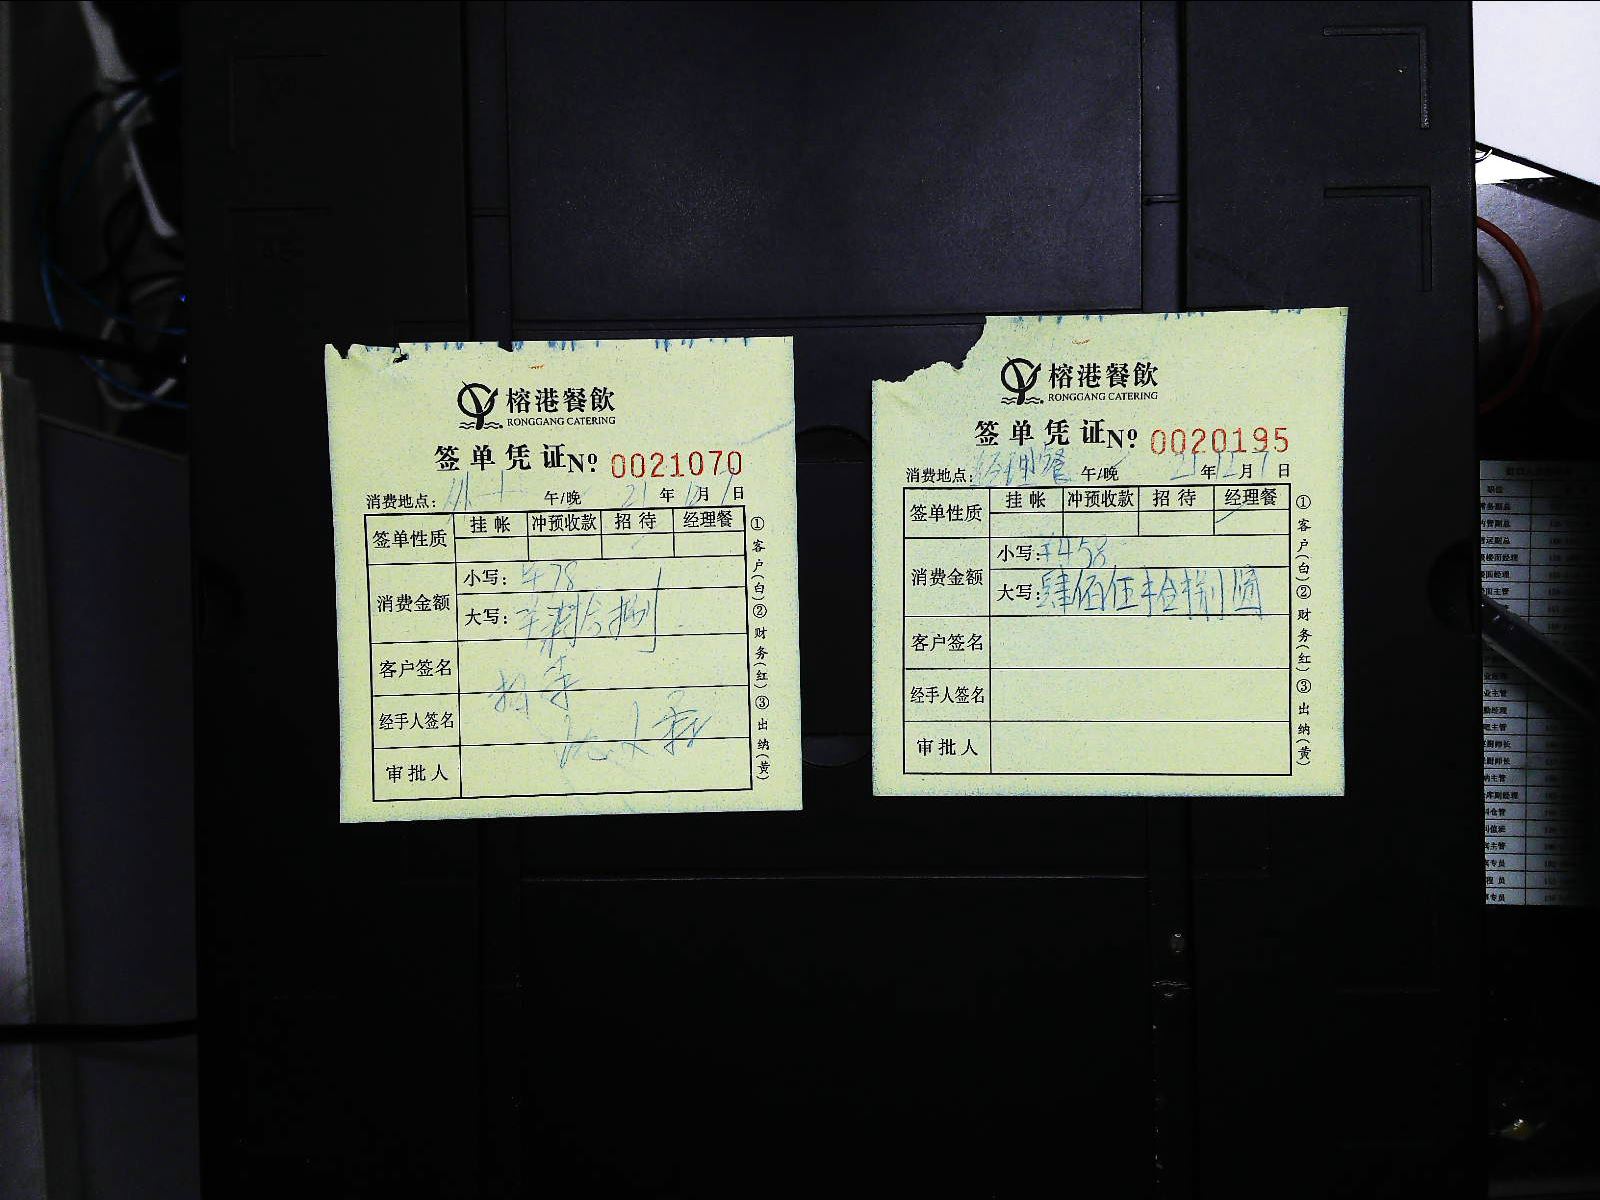 榕港餐飲
RONGGANG CATERING
签单凭证 Nº 0021070
消费地点: 午/晚 21年12月1日
签单性质 挂帐 冲预收款 招待 经理餐
消费金额 小写: ¥78
大写:
客户签名
经手人签名
审批人
①客户(白)②财务(红)③出纳(黄)
榕港餐飲
RONGGANG CATERING
签单凭证 Nº 0020195
消费地点: 经理餐 午/晚 21年12月1日
签单性质 挂帐 冲预收款 招待 经理餐
消费金额 小写: ¥458
大写: 肆佰伍拾捌圆
客户签名
经手人签名
审批人
①客户(白)②财务(红)③出纳(黄)